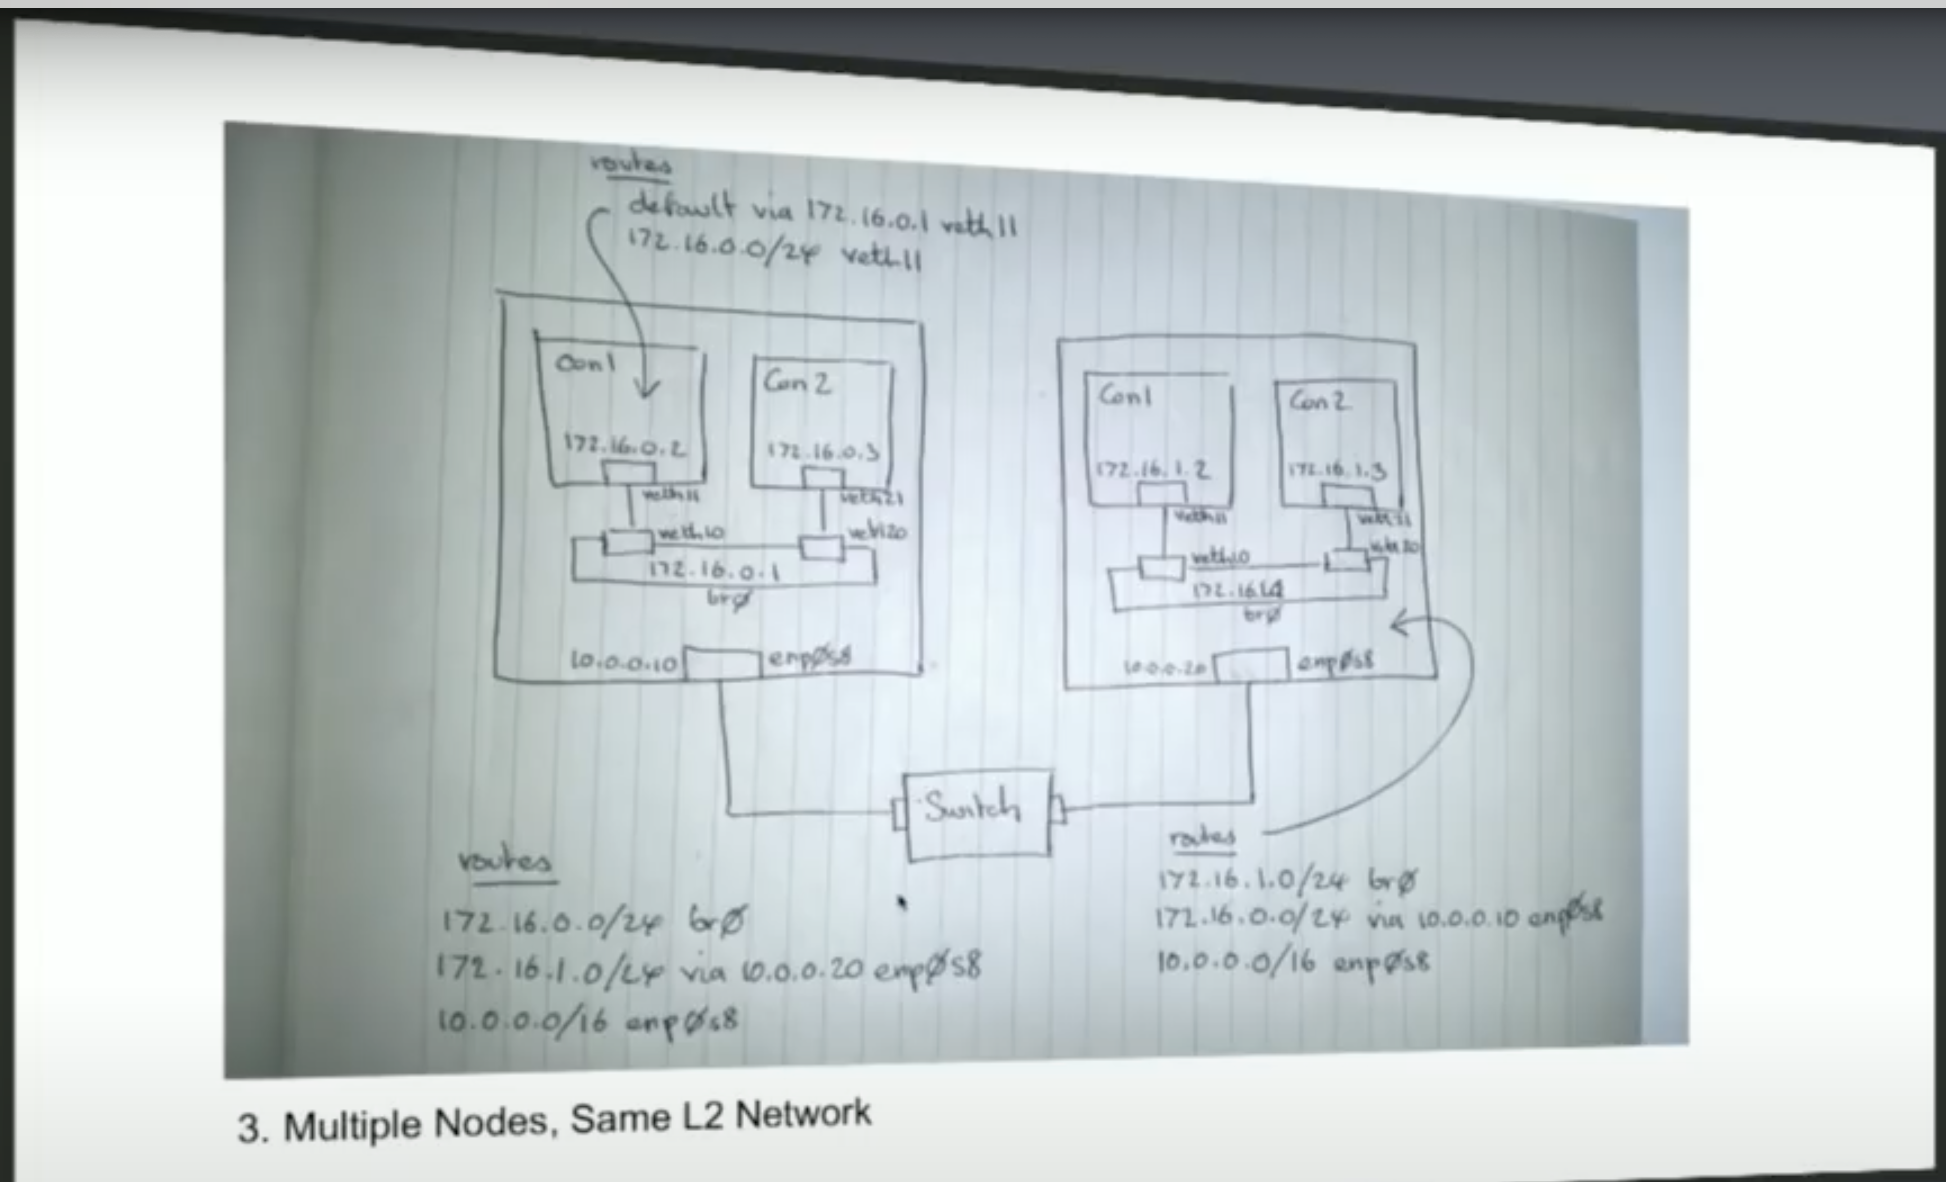 routes
default via 172.16.0.1 veth11
172.16.0.0/24 veth11
Con1
172.16.0.2
veth11
veth10
Con2
172.16.0.3
veth21
veth20
172.16.0.1
brø
10.0.0.10
enpØs8
Con1
172.16.1.2
veth11
veth10
Con2
172.16.1.3
veth21
veth20
brø
10.0.0.20
enpØs8
Switch
routes
172.16.0.0/24 brØ
172.16.1.0/24 via 10.0.0.20 enpØs8
10.0.0.0/16 enpØs8
routes
172.16.1.0/24 brØ
172.16.0.0/24 via 10.0.0.10 enpØs8
10.0.0.0/16 enpØs8
3. Multiple Nodes, Same L2 Network